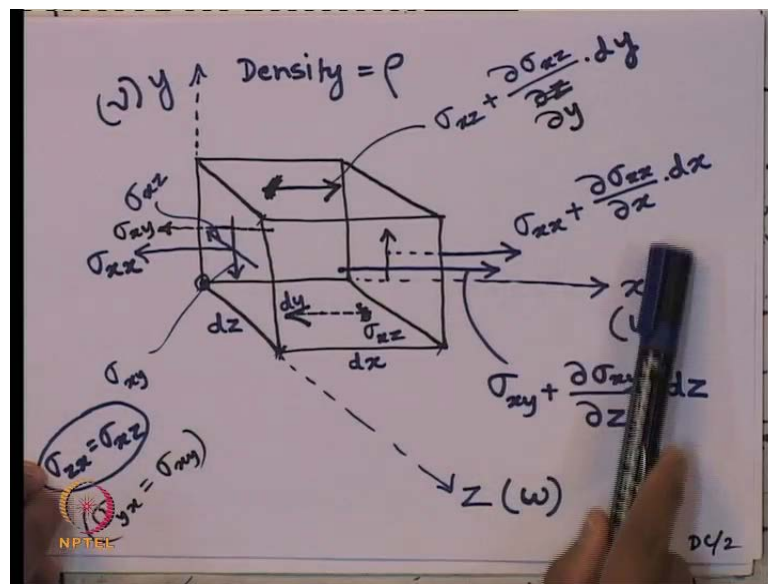 (v) y Density = ρ
σxz + ∂σxz/∂y . dy
σxx + ∂σxx/∂x . dx
σxz
σxy
σxx
x
dy
dz
σxz
dx
σxy
σxy + ∂σxy/∂z dz
σzx = σxz
(σyx = σxy)
z (w)
NPTEL
DC/2